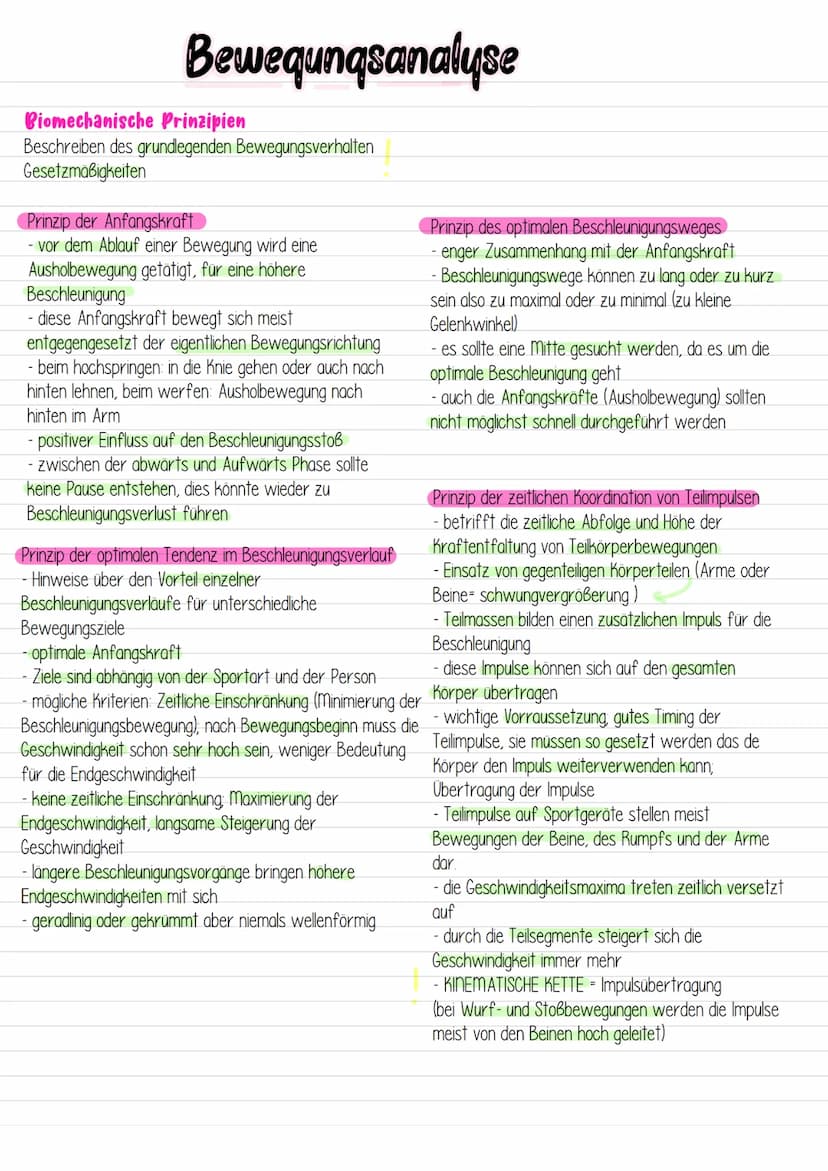 Bewegungsanalyse
Biomechanische Prinzipien
Beschreiben des grundlegenden Bewegungsverhalten
Gesetzmäßigkeiten
!
Prinzip der Anfangskraft
- vor dem Ablauf einer Bewegung wird eine
Ausholbewegung getätigt, für eine höhere
Beschleunigung
- diese Anfangskraft bewegt sich meist
entgegengesetzt der eigentlichen Bewegungsrichtung
- beim hochspringen: in die Knie gehen oder auch nach
hinten lehnen, beim werfen: Ausholbewegung nach
hinten im Arm
- positiver Einfluss auf den Beschleunigungsstoß
- zwischen der abwärts und Aufwärts Phase sollte
keine Pause entstehen, dies könnte wieder zu
Beschleunigungsverlust führen
Prinzip der optimalen Tendenz im Beschleunigungsverlauf
- Hinweise über den Vorteil einzelner
Beschleunigungsverläufe für unterschiedliche
Bewegungsziele
- optimale Anfangskraft
- Ziele sind abhängig von der Sportart und der Person
- mögliche Kriterien: Zeitliche Einschränkung (Minimierung der
Beschleunigungsbewegung), nach Bewegungsbeginn muss die
Geschwindigkeit schon sehr hoch sein, weniger Bedeutung
für die Endgeschwindigkeit
- keine zeitliche Einschränkung; Maximierung der
Endgeschwindigkeit, langsame Steigerung der
Geschwindigkeit
- längere Beschleunigungsvorgänge bringen höhere
Endgeschwindigkeiten mit sich
- geradlinig oder gekrümmt aber niemals wellenförmig
Prinzip des optimalen Beschleunigungsweges
- enger Zusammenhang mit der Anfangskraft
- Beschleunigungswege können zu lang oder zu kurz
sein also zu maximal oder zu minimal (zu kleine
Gelenkwinkel)
- es sollte eine Mitte gesucht werden, da es um die
optimale Beschleunigung geht
- auch die Anfangskräfte (Ausholbewegung) sollten
nicht möglichst schnell durchgeführt werden
Prinzip der zeitlichen Koordination von Teilimpulsen
- betrifft die zeitliche Abfolge und Höhe der
Kraftentfaltung von Teilkörperbewegungen
- Einsatz von gegenteiligen Körperteilen (Arme oder
Beine= schwungvergrößerung )
- Teilmassen bilden einen zusätzlichen Impuls für die
Beschleunigung
- diese Impulse können sich auf den gesamten
Körper übertragen
- wichtige Vorraussetzung, gutes Timing der
Teilimpulse, sie müssen so gesetzt werden das de
Körper den Impuls weiterverwenden kann;
Übertragung der Impulse
- Teilimpulse auf Sportgeräte stellen meist
Bewegungen der Beine, des Rumpfs und der Arme
dar.
- die Geschwindigkeitsmaxima treten zeitlich versetzt
auf
- durch die Teilsegmente steigert sich die
Geschwindigkeit immer mehr
! - KINEMATISCHE KETTE = Impulsübertragung
(bei Wurf- und Stoßbewegungen werden die Impulse
meist von den Beinen hoch geleitet)